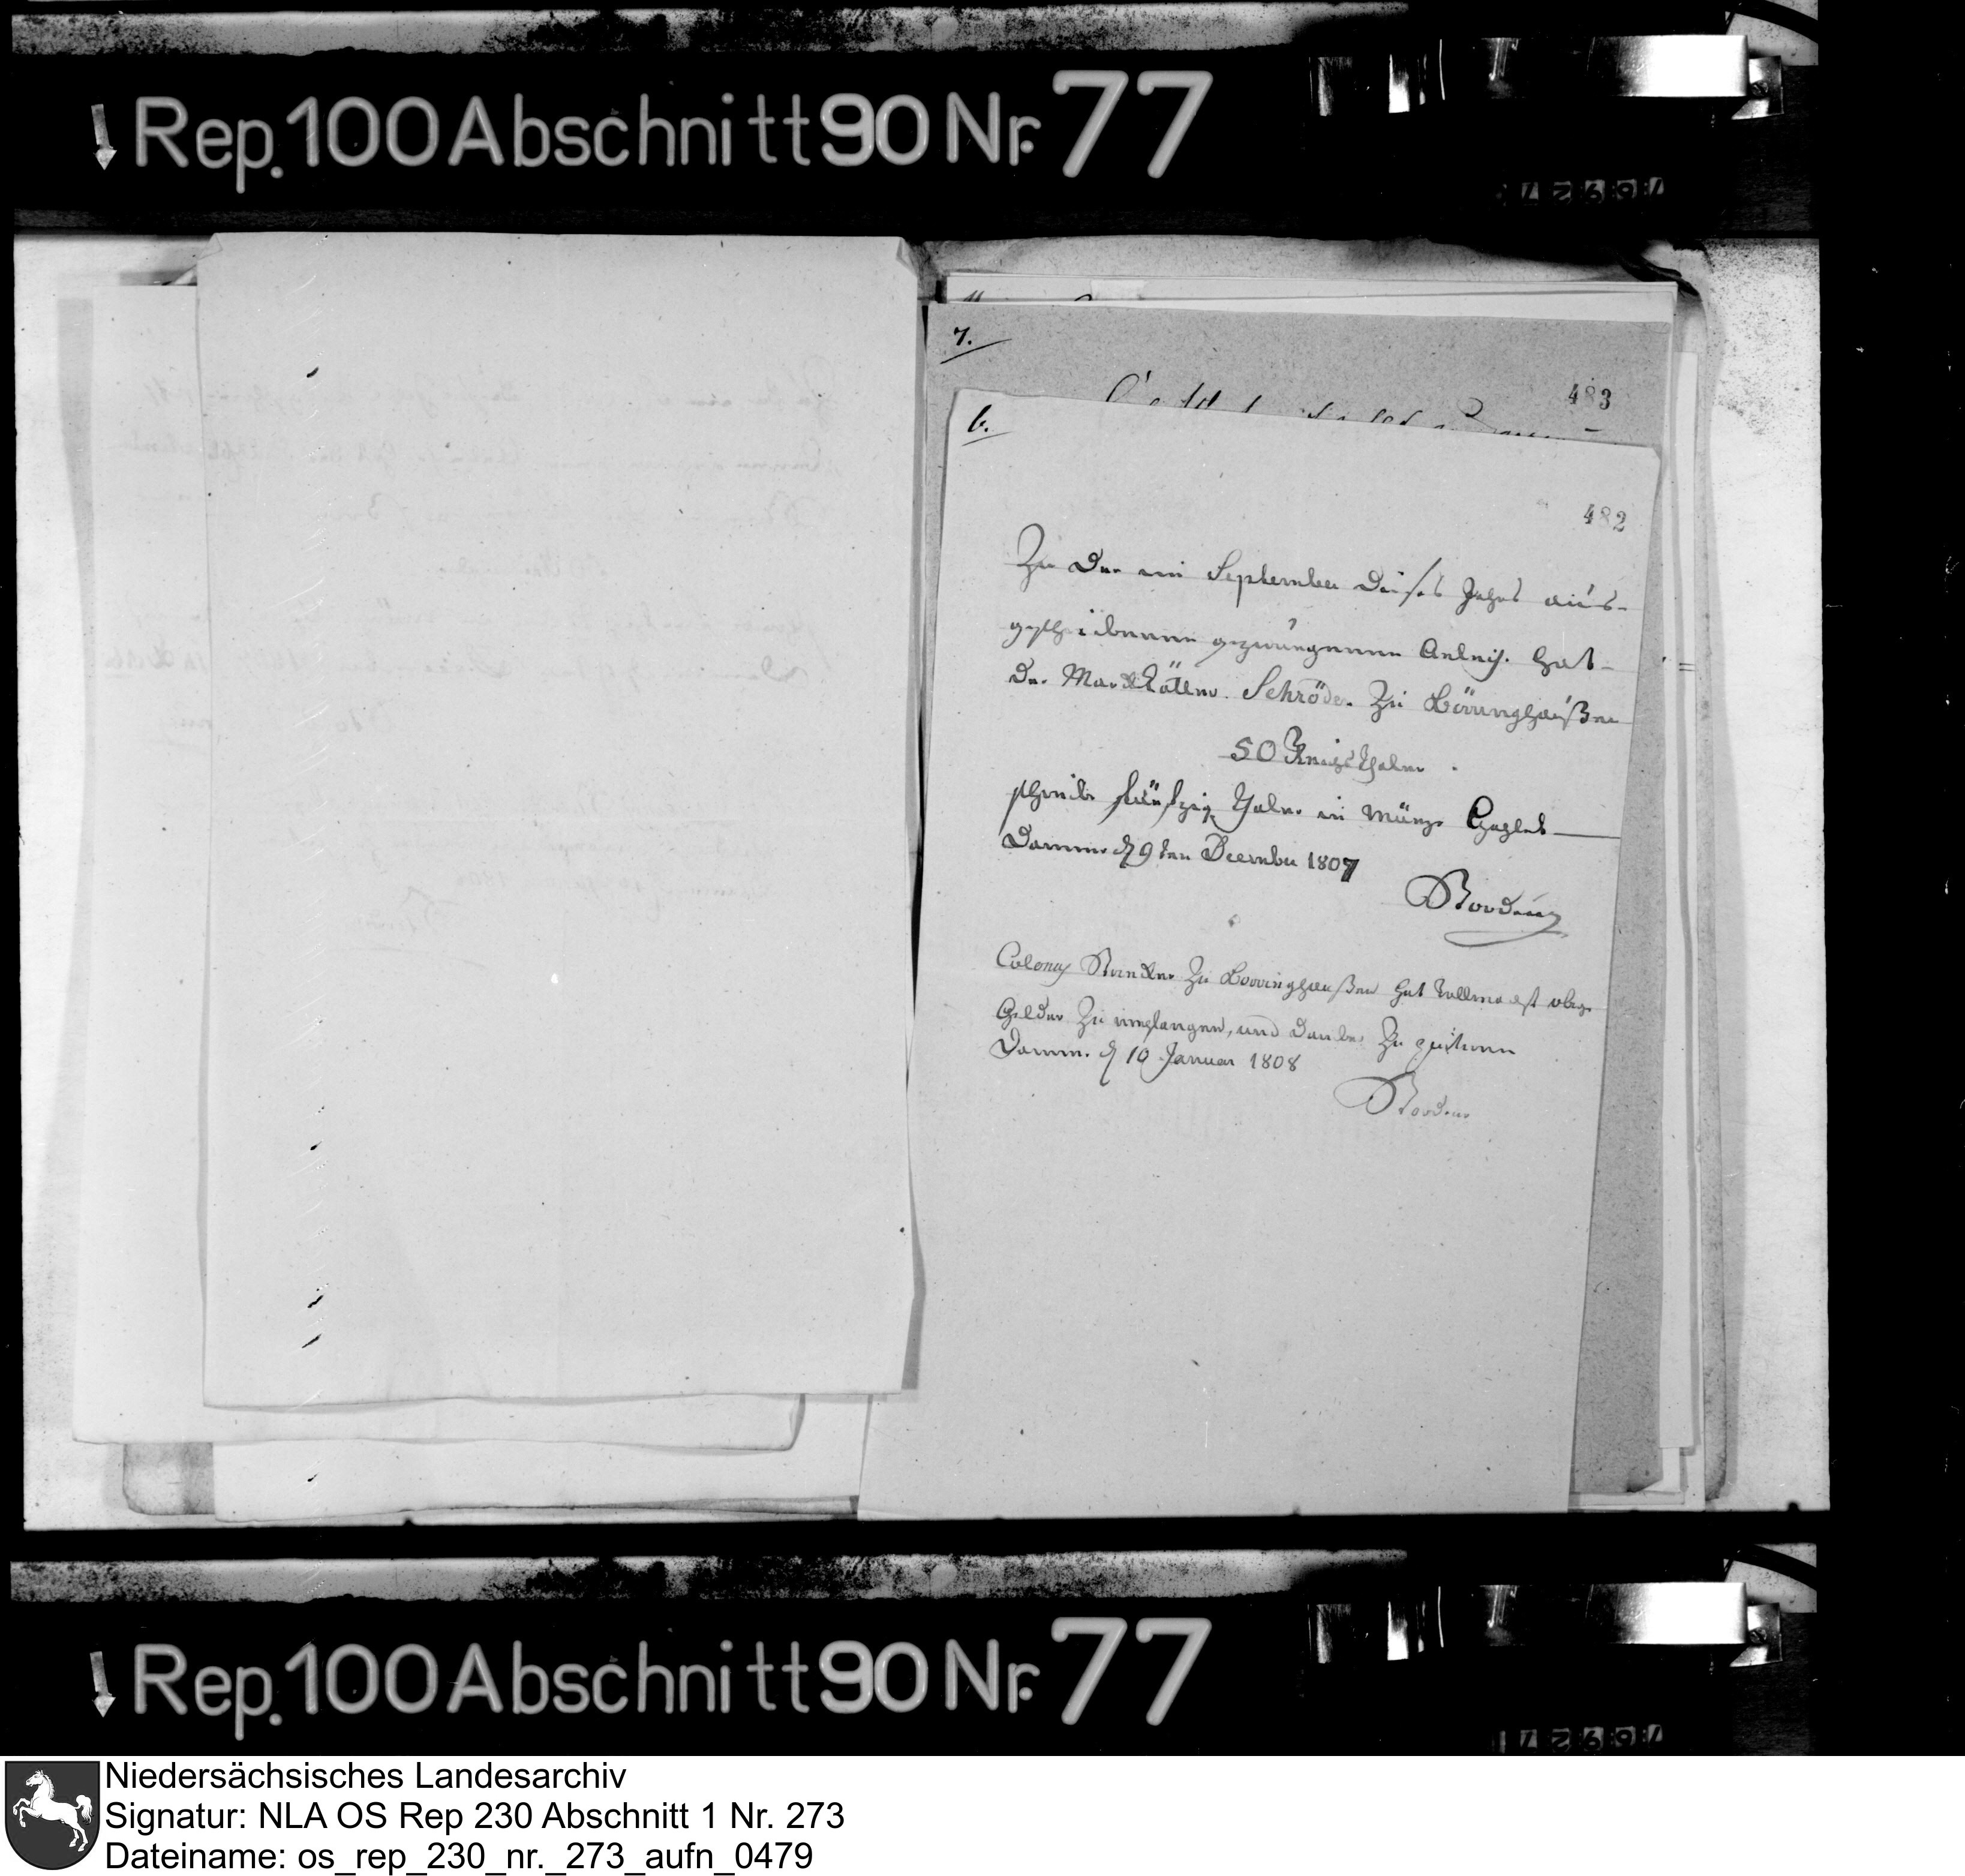 Rep. 100 Abschnitt 90 Nr. 77
7.
483
6.
482
Zu der im September dieses Jahrs aus-
geschriebenen gezwungenen Anleihe hat
der Markkötter Schröder zu Börringhaußen
50 Reichsthaler
schreibe fünfzig Thaler in Münze Gezahlt
Damme d 9ten December 1807
Colonus zu Borringhaußen hat obige
Gelder zu empfangen, und darüber zu quitiren
Damme d 10 Januar 1808
Rep. 100 Abschnitt 90 Nr. 77
Niedersächsisches Landesarchiv
Signatur: NLA OS Rep 230 Abschnitt 1 Nr. 273
Dateiname: os_rep_230_nr._273_aufn_0479